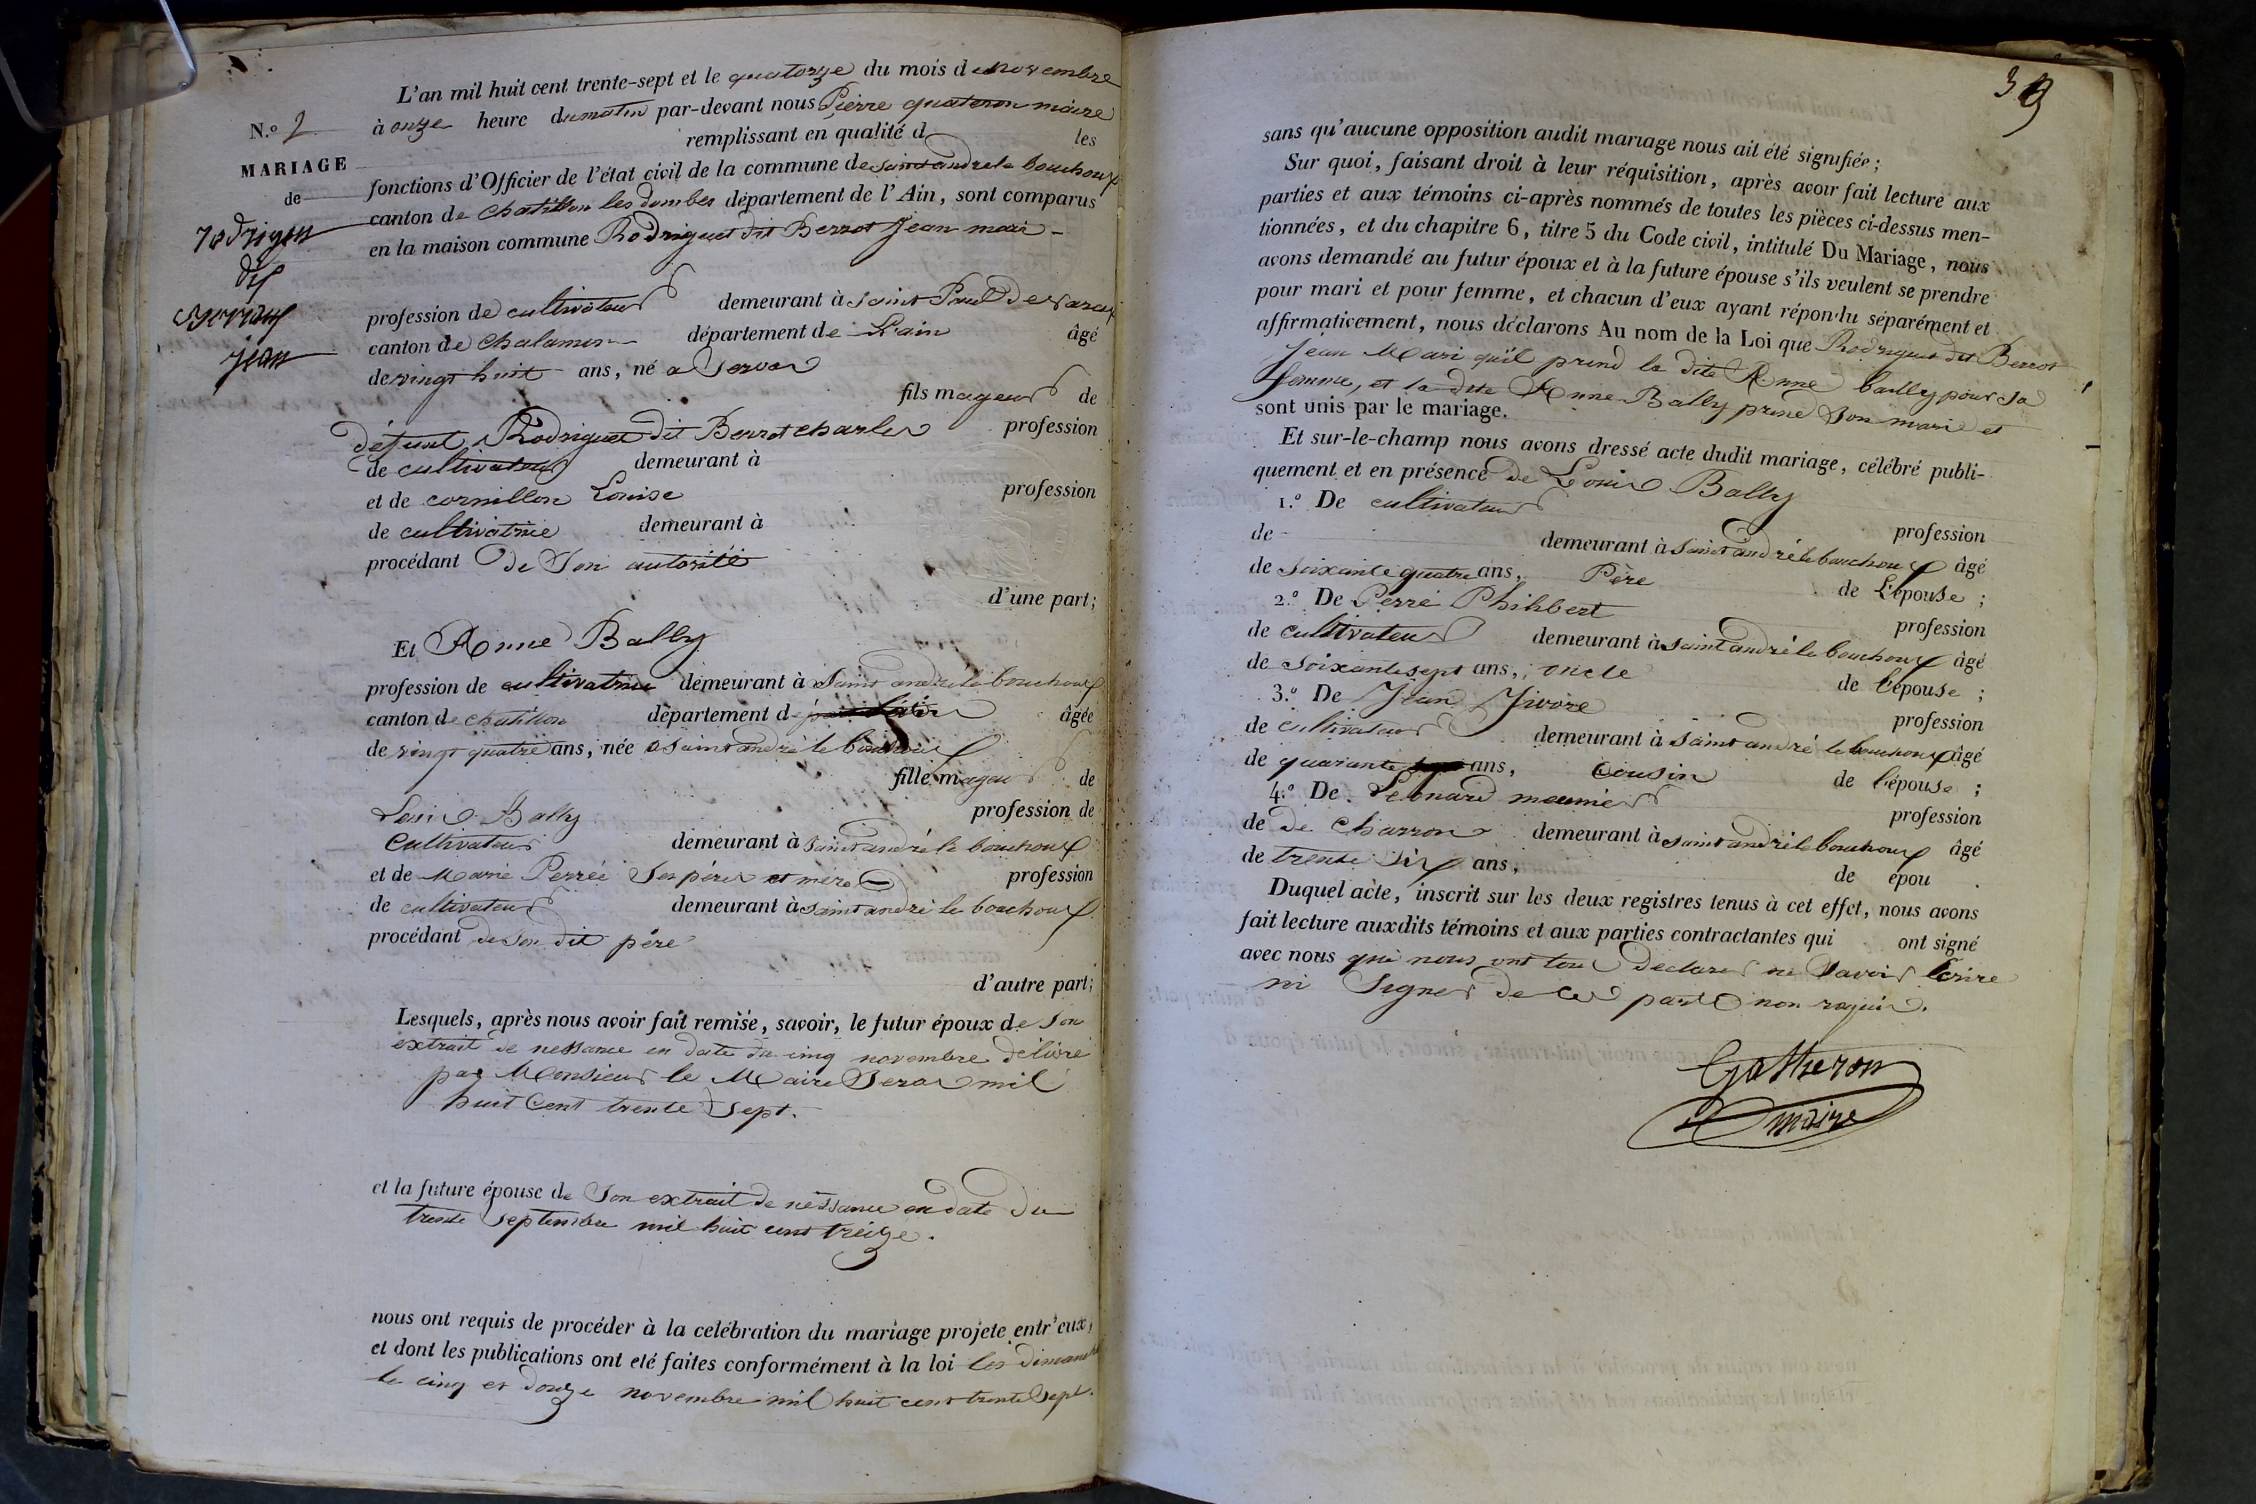 L'an mil huit cent trente-sept et le quatorze du mois de novembre
à onze heure du matin par-devant nous Pierre quateron maire
remplissant en qualité d les
fonctions d'Officier de l'état civil de la commune de saint andré le bouchoux
canton de chatillon les dombes département de l'Ain, sont comparus
en la maison commune Rodriguet dit Berrot Jean mari
N.º 2
MARIAGE
de
dit
jean
profession de cultivateur demeurant à saint Paul de varax
canton de chalamon département de L'ain âgé
de vingt huit ans, né a Servas
fils mageur de
défunt Rodriguet dit Berrot charles profession
de cultivateur demeurant à
et de cornillon Louise profession
de cultivatrice demeurant à
procédant de Son autorité
d'une part;
Et Anne Bally
profession de cultivatrice demeurant à Saint andré le bouchoux
canton de chatillon département d âgée
de vingt quatre ans, née a saint andré le bouchoux
fille mageur de
Louis Bally profession de
Cultivateur demeurant à saint andré le bouchoux
et de Marie Perréé Ses pères et mère profession
de cultivateur demeurant à saint andré le bouchoux
procédant de son dit père
d'autre part;
Lesquels, après nous avoir fait remise, savoir, le futur époux de Son
extrait de nessance en date du cinq novembre délivré
par Monsieur le Maire Servas mil
huit Cent trente Sept.
et la future épouse de Son extrait de nessance en date du
trente Septembre mil huit cent treize.
nous ont requis de procéder à la célébration du mariage projeté entr'eux,
et dont les publications ont été faites conformément à la loi les dimanche
le cinq et douze novembre mil huit cent trente Sept.
sans qu'aucune opposition audit mariage nous ait été signifiée;
Sur quoi, faisant droit à leur réquisition, après avoir fait lecture aux
parties et aux témoins ci-après nommés de toutes les pièces ci-dessus men-
tionnées, et du chapitre 6, titre 5 du Code civil, intitulé Du Mariage, nous
avons demandé au futur époux et à la future épouse s'ils veulent se prendre
pour mari et pour femme, et chacun d'eux ayant répondu séparément et
affirmativement, nous déclarons Au nom de la Loi que Rodriguet dit Berrot
Jean Mari qu'il prend la dite Anne bally pour sa
femme, et la dite Anne Bally prend Son mari et
sont unis par le mariage.
Et sur-le-champ nous avons dressé acte dudit mariage, célébré publi-
quement et en présence de Louis Bally
1.º De cultivateur profession
de demeurant à Saint andré le bouchoux âgé
de soixante quatre ans, Père de L'épouse;
2.º De Perré Philibert profession
de cultivateur demeurant à saint andré le bouchoux âgé
de soixante sept ans, oncle de l'épouse;
3.º De Jean Jivore profession
de cultivateur demeurant à saint andré le bouchoux âgé
de quarante ans, cousin de l'épouse;
4.º De Léonard meunier profession
de de Charron demeurant à saint andré le bouchoux âgé
de trente Six ans, de épou .
Duquel acte, inscrit sur les deux registres tenus à cet effet, nous avons
fait lecture auxdits témoins et aux parties contractantes qui ont signé
avec nous qui nous ont tous déclarés ne Savoir Ecrire
ni Signer de ce parte non requis.
Gatheron
maire